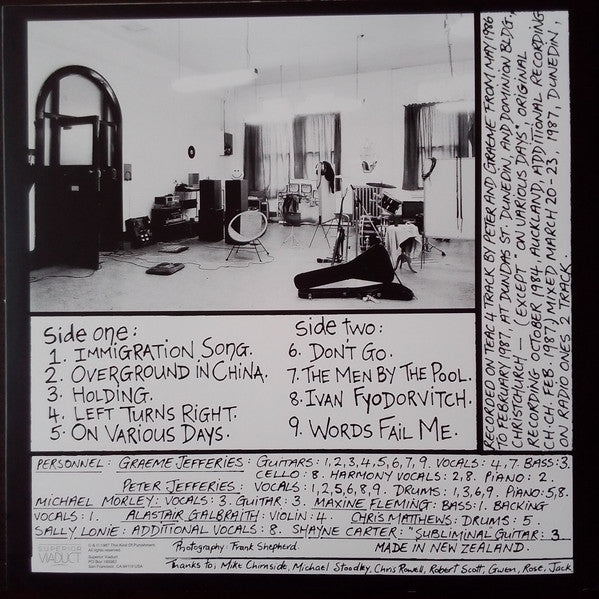 Side one:
1. IMMIGRATION SONG.
2. OVERGROUND IN CHINA.
3. HOLDING.
4. LEFT TURNS RIGHT.
5. ON VARIOUS DAYS.
Side two:
6. DON'T GO.
7. THE MEN BY THE POOL.
8. IVAN FYODORVITCH.
9. WORDS FAIL ME.
RECORDED ON TEAC 4 TRACK BY PETER AND GRAEME FROM MAY 1986
TO FEBRUARY 1987, AT DUNDAS ST. DUNEDIN, AND DOMINION BLDG.,
CHRISTCHURCH — (EXCEPT "ON VARIOUS DAYS", ORIGINAL
RECORDING OCTOBER 1984 AUCKLAND, ADDITIONAL RECORDING
CH.CH. FEB. 1987.) MIXED MARCH 20-23, 1987, DUNEDIN,
ON RADIO ONES 2 TRACK.
PERSONNEL: GRAEME JEFFERIES: GUITARS: 1,2,3,4,5,6,7,9. VOCALS: 4,7. BASS: 3.
CELLO: 8. HARMONY VOCALS: 2,8. PIANO: 2.
PETER JEFFERIES: VOCALS: 1,2,5,6,8,9. DRUMS: 1,3,6,9. PIANO: 5,8.
MICHAEL MORLEY: VOCALS: 3. GUITAR: 3. MAXINE FLEMING: BASS: 1. BACKING
VOCALS: 1. ALASTAIR GALBRAITH: VIOLIN: 4. CHRIS MATTHEWS: DRUMS: 5
SALLY LONIE: ADDITIONAL VOCALS: 8. SHAYNE CARTER: "SUBLIMINAL GUITAR: 3
SUPERIOR
VIADUCT
℗ © 1987 This Kind Of Punishment.
All rights reserved.
Superior Viaduct
San Francisco, CA 94119 USA
Photography: Frank Shepherd.
MADE IN NEW ZEALAND.
Thanks to; Mike Chirnside, Michael Stoodley, Chris Rowell, Robert Scott, Gwen, Rose, Jack